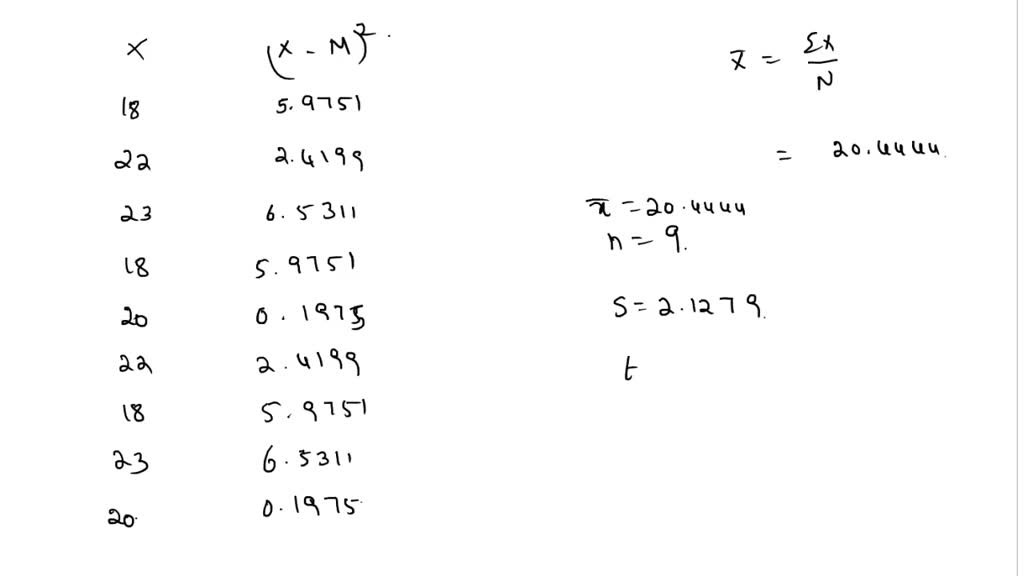 X (X - M)²
18 5.9751
22 2.4199
23 6.5311
18 5.9751
20 0.1975
22 2.4199
18 5.9751
23 6.5311
20 0.1975
x̄ = Σx / N
= 20.4444
x̄ = 20.4444
n = 9.
S = 2.1279
t